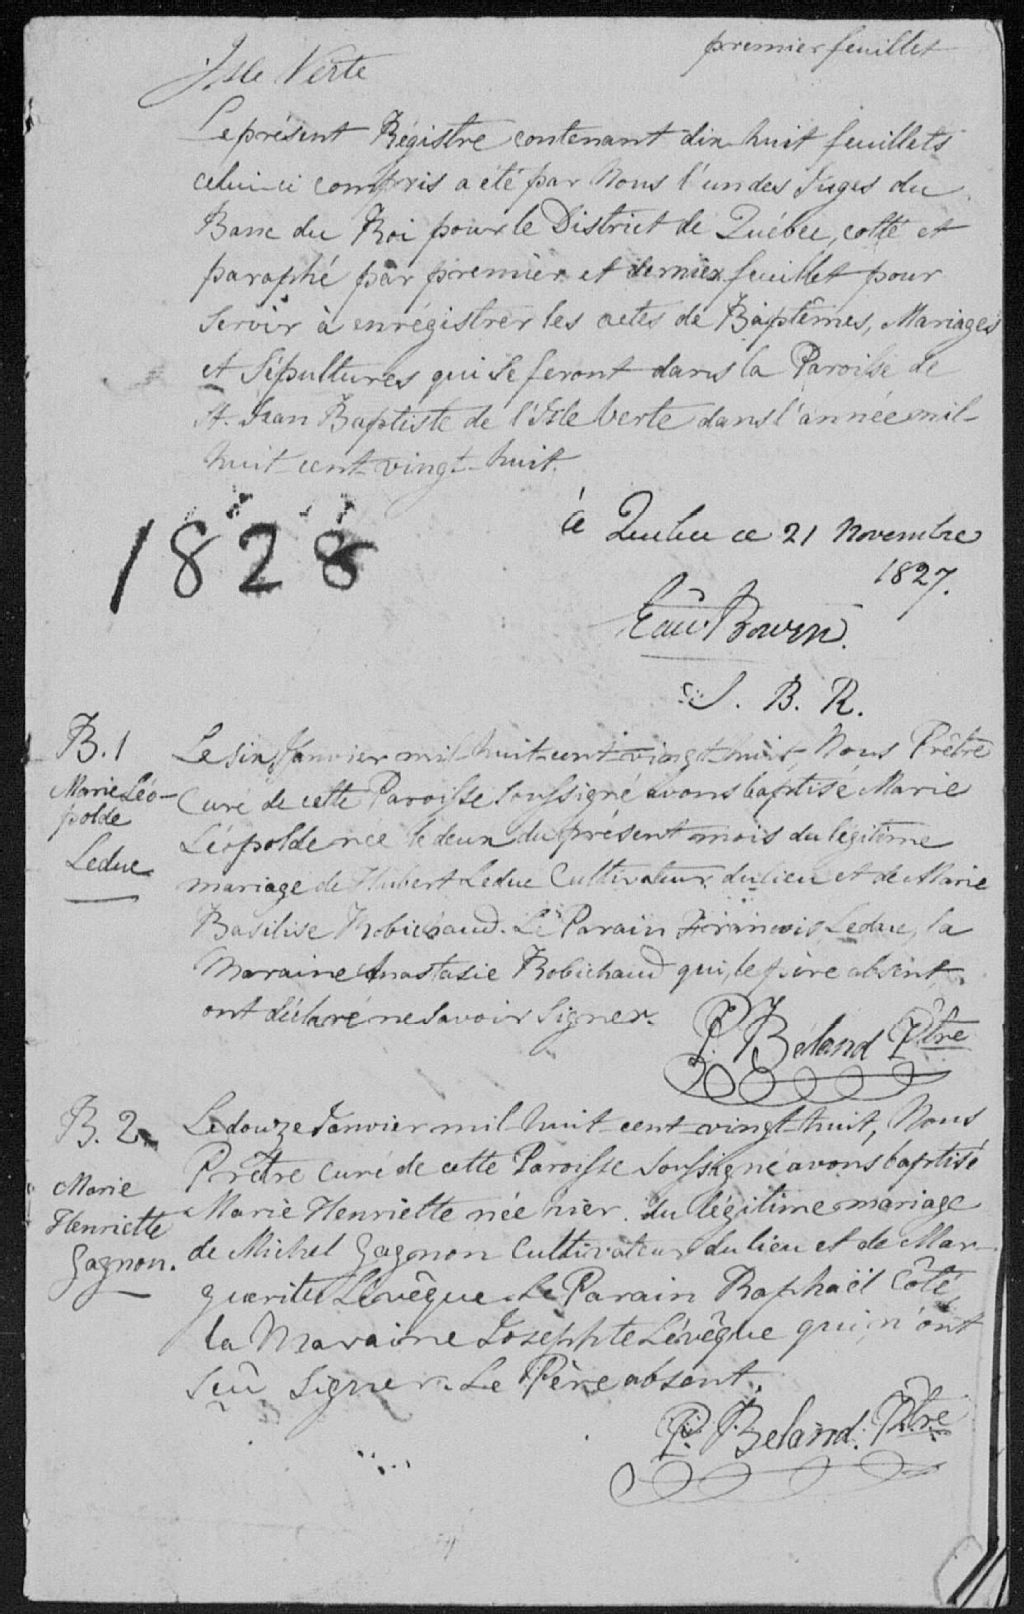 premier feuillet
Isle Verte
Le présent Régistre contenant dix huit feuillets
celui-ci compris a été par Nous l'un des Juges du
Banc du Roi pour le District de Québec, cotté et
paraphé par premier et dernier feuillet pour
Servir à enrégistrer les actes de Baptêmes, Mariages
et Sépultures qui se feront dans la Paroisse de
St. Jean Baptiste de l'Isle Verte dans l'année mil-
huit cent vingt-huit.
1828
à Quebec ce 21 Novembre
1827.
Edw Bowen.
J. B. R.
B. 1
Marie Léo-
polde
Leduc
Le six Janvier mil huit cent vingt huit, Nous Prêtre
Curé de cette Paroisse soussigné avons baptisé Marie
Léopolde née le deux du présent mois du légitime
mariage de Hubert Leduc Cultivateur du lieu et de Marie
Basilise Robichaud. Le Parain François Leduc, la
Maraine Anastasie Robichaud qui, le père absent,
ont déclaré ne savoir signer.
P. Béland Ptre
B. 2.
Marie
Henriette
Gagnon.
Le douze Janvier mil huit cent vingt-huit, Nous
Prêtre curé de cette Paroisse soussigné avons baptisé
Marie Henriette née hier du légitime mariage
de Michel Gagnon Cultivateur du lieu et de Mar-
guerite Lévêque. Le Parain Raphaël Côté,
la Maraine Josephte Lévêque qui n'ont
sçû signer. Le Père absent.
P. Beland. Ptre